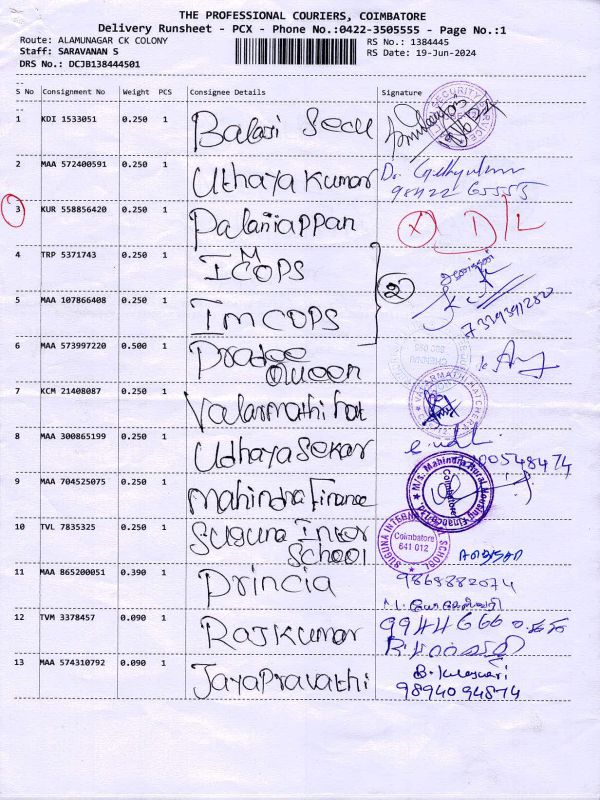 THE PROFESSIONAL COURIERS, COIMBATORE
Delivery Runsheet - PCX - Phone No.:0422-3505555 - Page No.:1
Route: ALAMUNAGAR CK COLONY RS No.: 1384445
Staff: SARAVANAN S RS Date: 19-Jun-2024
DRS No.: DCJB138444501
S No Consignment No Weight PCS Consignee Details Signature
1 KDI 1533051 0.250 1 Balaji Secu
2 MAA 572400591 0.250 1 Uthaya Kumar Dr.
98422 65555
3 KUR 558856420 0.250 1 Palaniappan X D/L
4 TRP 5371743 0.250 1 IMCOPS
2
5 MAA 107866408 0.250 1 IMCOPS
6 MAA 573997220 0.500 1 Pradee
Queen
7 KCM 21408087 0.250 1 Valarmathi hat VALARMATHI HATCHERY
8 MAA 300865199 0.250 1 Udhaya Sekar
9 MAA 704525075 0.250 1 Mahindra Finance M/s. Mahindra Rural Housing Finance Ltd. Coimbatore
10 TVL 7835325 0.250 1 Suguna Inter
School SUGUNA INTERNATIONAL SCHOOL Coimbatore 641 012
11 MAA 865200051 0.390 1 Princia 9868882074
12 TVM 3378457 0.090 1 Rajkumar
13 MAA 574310792 0.090 1 Jayapravathi
9894094874